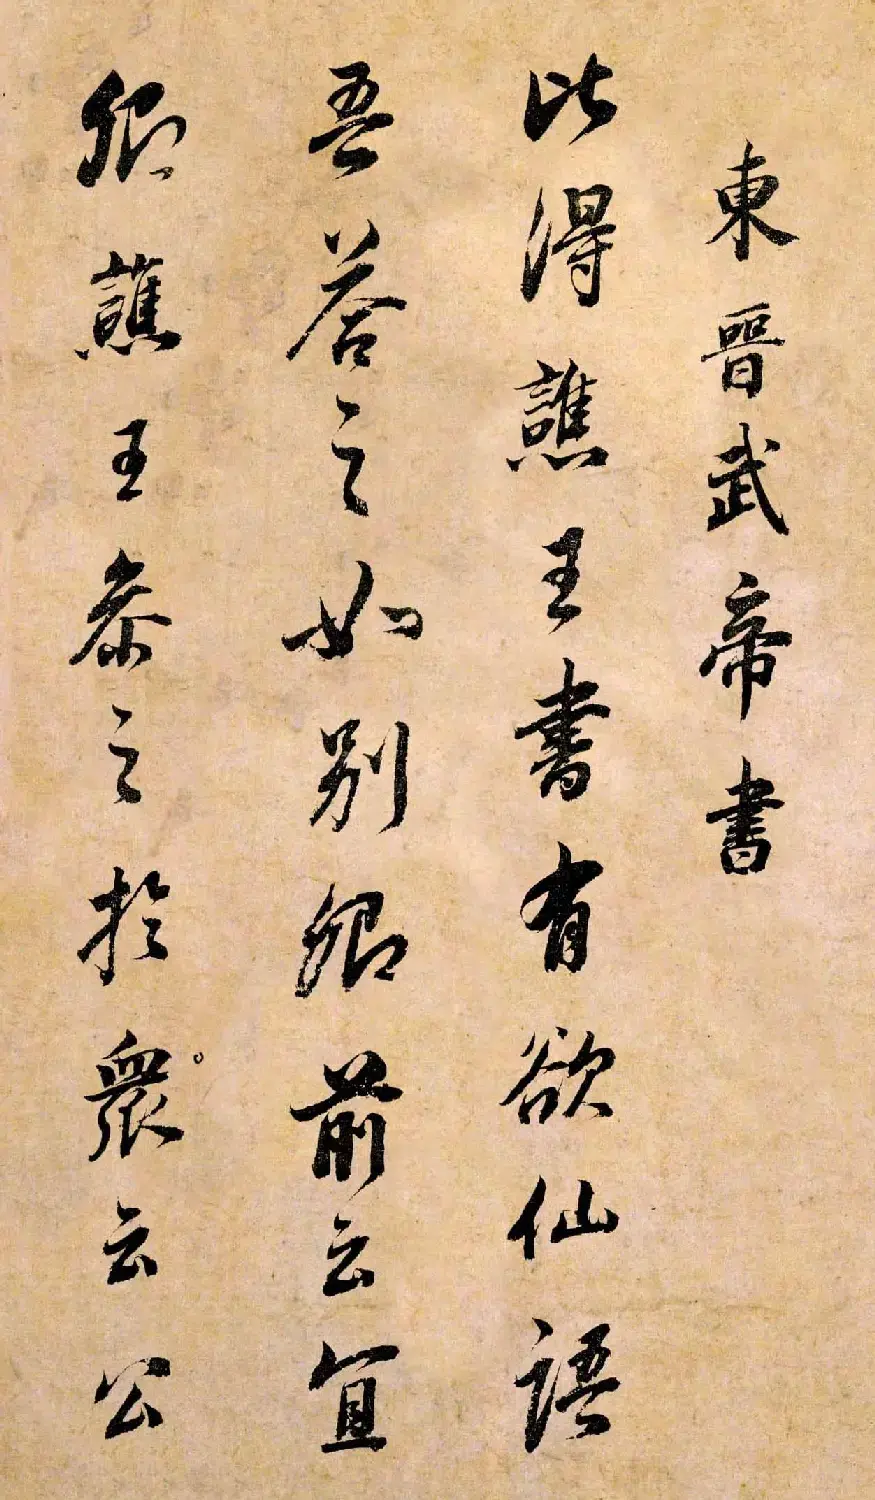 東晉武帝書
比得譙王書有欲仙語
吾答之如別卿前云宜
卿譙王參之於衆云公